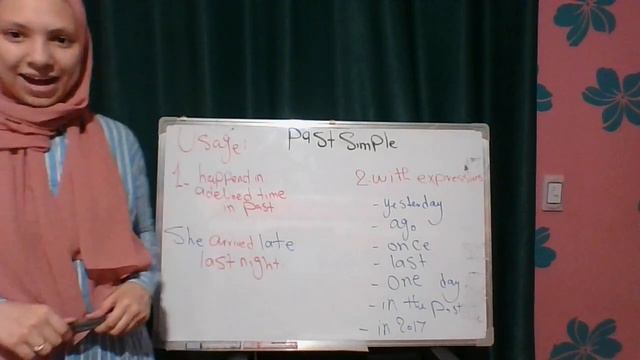 Past Simple
Usage:
1- happend in
adefined time
in past
She arrived late
last night
2. with expressions
- yesterday
- ago
- once
- last
- one day
- in the past
- in 2017